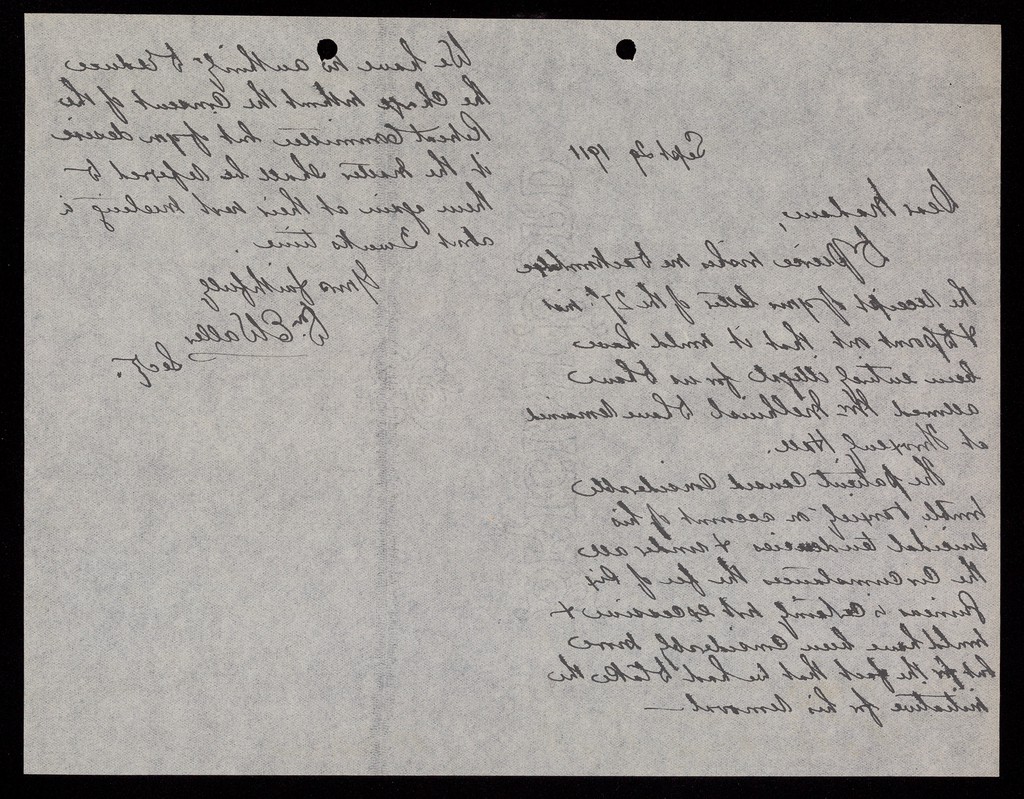 Sept 29 1911
Dear Madam,
Dr Pierce wishes me to acknowledge
the receipt of your letter of the 27th inst
& to point out that it would have
been entirely illegal for us to have
allowed Mr. to have remained
at Hall.
The patient caused considerable
trouble & anxiety on account of his
suicidal tendencies & under all
the circumstances the fee of six
guineas is certainly not excessive &
would have been considerably more
but for the fact that we had to take the
initiative for his removal —
We have no authority to reduce
the charge without the consent of the
Patient Committee but if you desire
it the matter shall be referred to
them again at their next meeting in
about 3 weeks time.
Yours faithfully
Wm. E. Waller
Secy.